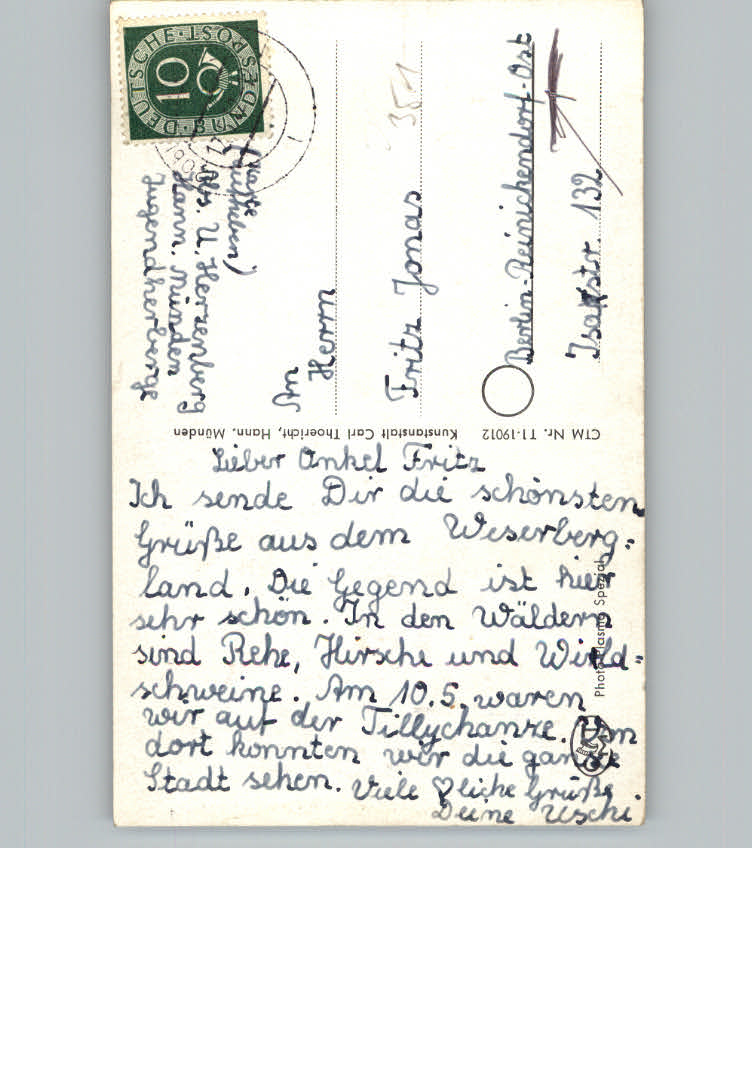 Lieber Onkel Fritz
Ich sende Dir die schönsten
Grüße aus dem Weserberg=
land. Die Gegend ist hier
sehr schön. In den Wäldern
sind Rehe, Hirsche und Wild=
schweine. Am 10.5. waren
wir auf der Tillychanze. Von
dort konnten wir die ganze
Stadt sehen. Viele ♡liche Grüße
Deine Uschi
DEUTSCHE BUNDESPOST
10
(Karte
aufheben)
Abs. U. Herzenberg
Hann. Münden
Jugendherberge
An
Herrn
Fritz Jonas
Berlin-Reinickendorf-Ost
132
351
CTM Nr. T1-19012
Kunstanstalt Carl Thoericht, Hann. Münden